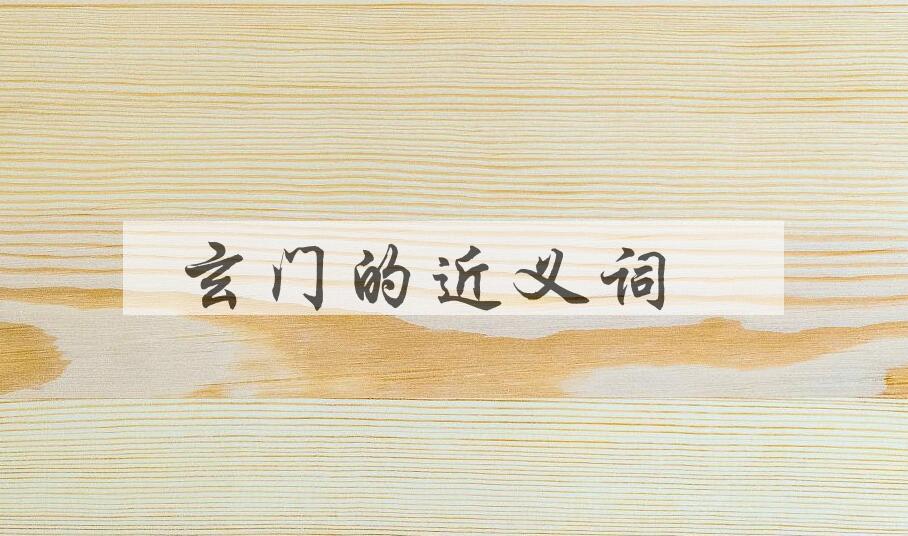 玄门的近义词